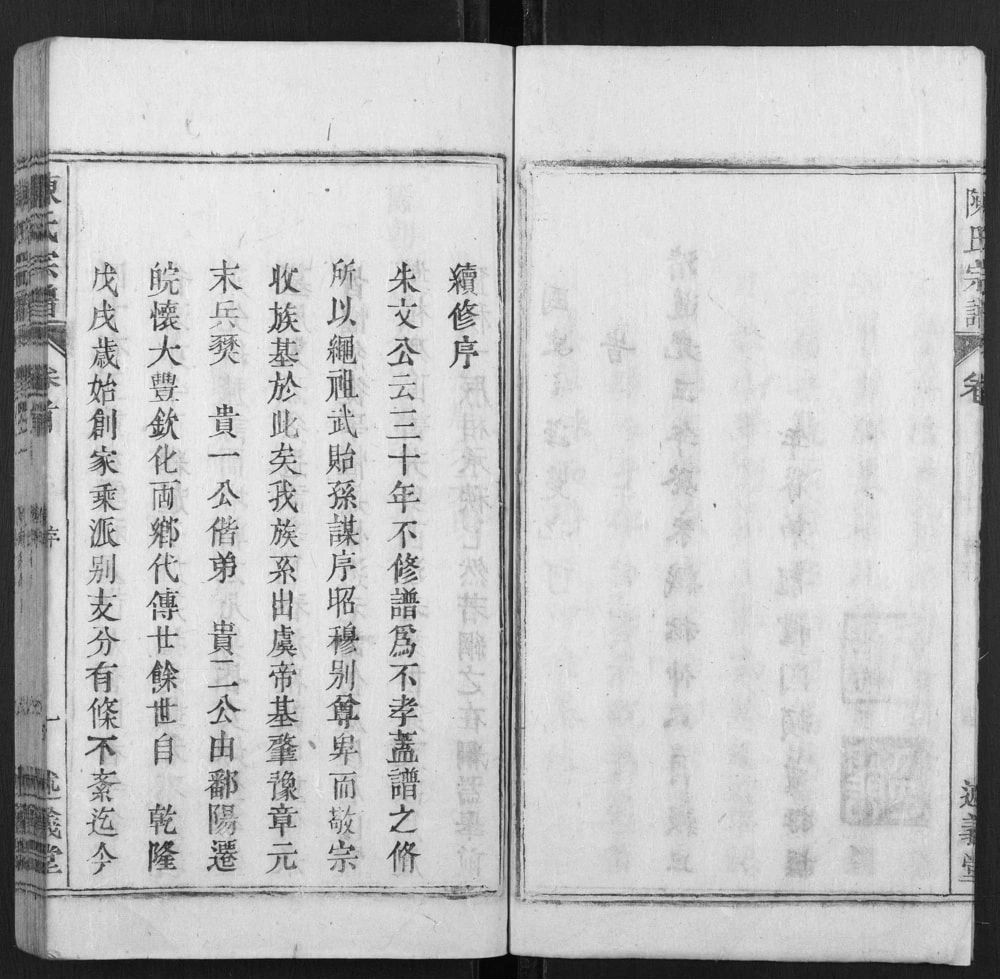 陳氏宗譜
卷
述義堂
續修序
朱文公云三十年不修譜爲不孝蓋譜之脩
所以繩祖武貽孫謀序昭穆别尊卑而敬宗
收族基於此矣我族系出虞帝基肇豫章元
末兵燹 貴一公偕弟 貴二公由鄱陽遷
皖懷大豐欽化両鄉代傳世餘世自 乾隆
戊戌歲始創家乘派别支分有條不紊迄今
陳氏宗譜
卷首
序
一
述義堂